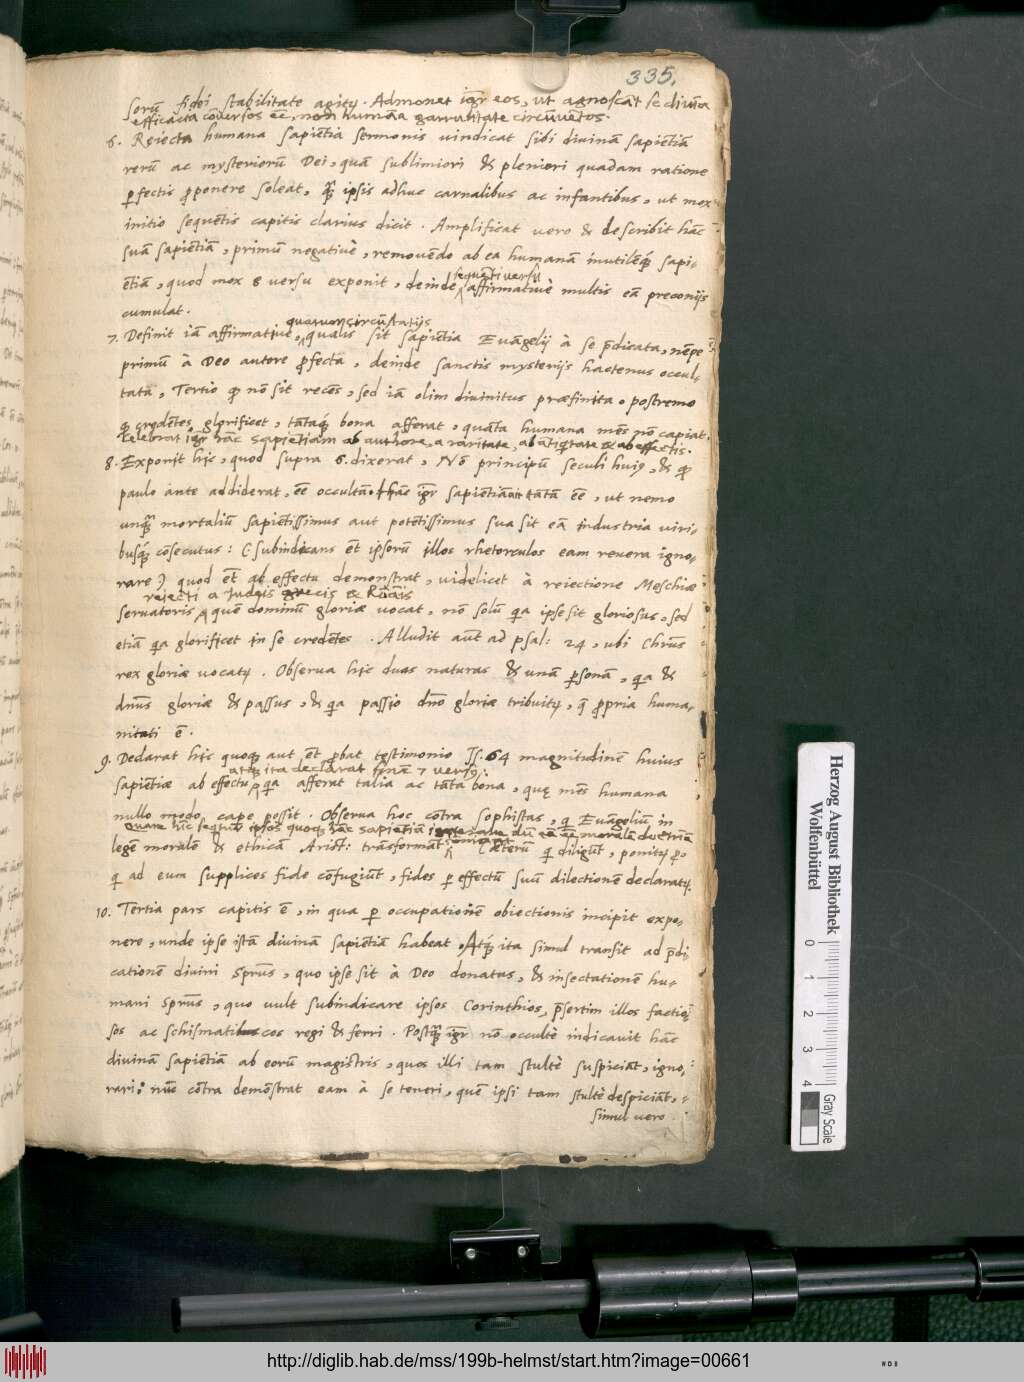 335.
sorū fidei stabilitate agitꝫ. Admonet igr̄ eos, ut agnoscāt se diuina
efficaciā cōuersos eē, non humāa garrulitate circūuētos.
6. Reiecta humana sapiētia sermonis uindicat sibi diuinā sapiētiā
rerū ac mysteriorū Dei, quā sublimiori & pleniori quadam ratione
ꝑfectis ꝓponere soleat, ipsis adhuc carnalibus ac infantibus, ut mox
initio sequētis capitis clarius dicit. Amplificat uero & describit hāc
suā sapiētiā, primū negatiuè, remouēdo ab ea humanā inutilēqꝫ sapi-
ētiā, quod mox 8 uersu exponit, deinde sequēti uersu affirmatiuè multis eā preconijs
cumulat.
7. Definit iā affirmatiue, quatuor circūstātijs qualis sit sapiētia Euāgelij à se p̄dicata, nēpe
primū à Deo autore ꝓfecta, deinde sanctis mysterijs hactenus occul-
tata, Tertio nō sit recēs, sed iā olim diuinitus præfinita. postremo
credētes glorificet, tātaqꝫ bona afferat, quāta humana mēs nō capiat.
Celebrat igr̄ hāc sapientiam ab authore, a raritate, ab ātiqtate & ab effectis.
8. Exponit hic, quod supra 6. dixerat, Nō principū seculi huiꝰ, &
paulo ante addiderat, eē occultā. Hāc igr̄ sapientiā ait tātā eē, ut nemo
unquā mortaliū sapiētissimus aut potētissimus sua sit eā industria uiri-
busqꝫ cōsecutus: (subindicans ēt ipsorū illos rhetorculos eam reuera igno-
rare) quod ēt ab effectu demonstrat, uidelicet à reiectione Meschiæ
reiecti a Judęis gręcis & Romāis
seruatoris, quē dominū gloriæ uocat, nō solū qa ipse sit gloriosus, sed
etiā qa glorificet in se credētes. Alludit aūt ad psal: 24, ubi Chrūs
rex gloriæ uocatꝫ. Obserua hic duas naturas & unā ꝑsonā, qa &
dn̄us gloriæ & passus, & qa passio dn̄o gloriæ tribuitꝫ, ꝓpria huma-
nitati ē.
9. Declarat hic quoqꝫ aut ēt ꝓbat testimonio Is. 64 magnitudinē huius
atqꝫ ita declarat finē 7 uersꝰ:
sapiētiæ ab effectu, qa afferat talia ac tāta bona, quę mēs humana
nullo modo cape possit. Obserua hoc cōtra sophistas, q Euāgeliū in
legē moralē & ethicā Arist: trāsformāt. Cæterū q diligūt, ponitꝫ ꝓ
q ad eum supplices fide cōfugiūt, fides ꝑ effectū suū dilectionē declaratꝫ.
10. Tertia pars capitis ē, in qua ꝑ occupationē obiectionis incipit expo-
nere, unde ipse istā diuinā sapiētiā habeat. Atqꝫ ita simul transit ad p̄di
cationē diuini Sprūs, quo ipse sit à Deo donatus, & insectationē hu-
mani sprūs, quo uult subindicare ipsos Corinthios, p̄sertim illos factio-
sos ac schismaticos regi & ferri. Postqꝫ igr̄ nō occultè indicauit hāc
diuinā sapiētiā ab eorū magistris, quos illi tam stultè suspiciāt, igno-
rari: nūc cōtra demōstrat eam à se teneri, quē ipsi tam stultè despiciāt,
simul uero
Herzog August Bibliothek
Wolfenbüttel
0 1 2 3 4
Gray Scale
http://diglib.hab.de/mss/199b-helmst/start.htm?image=00661
WDB